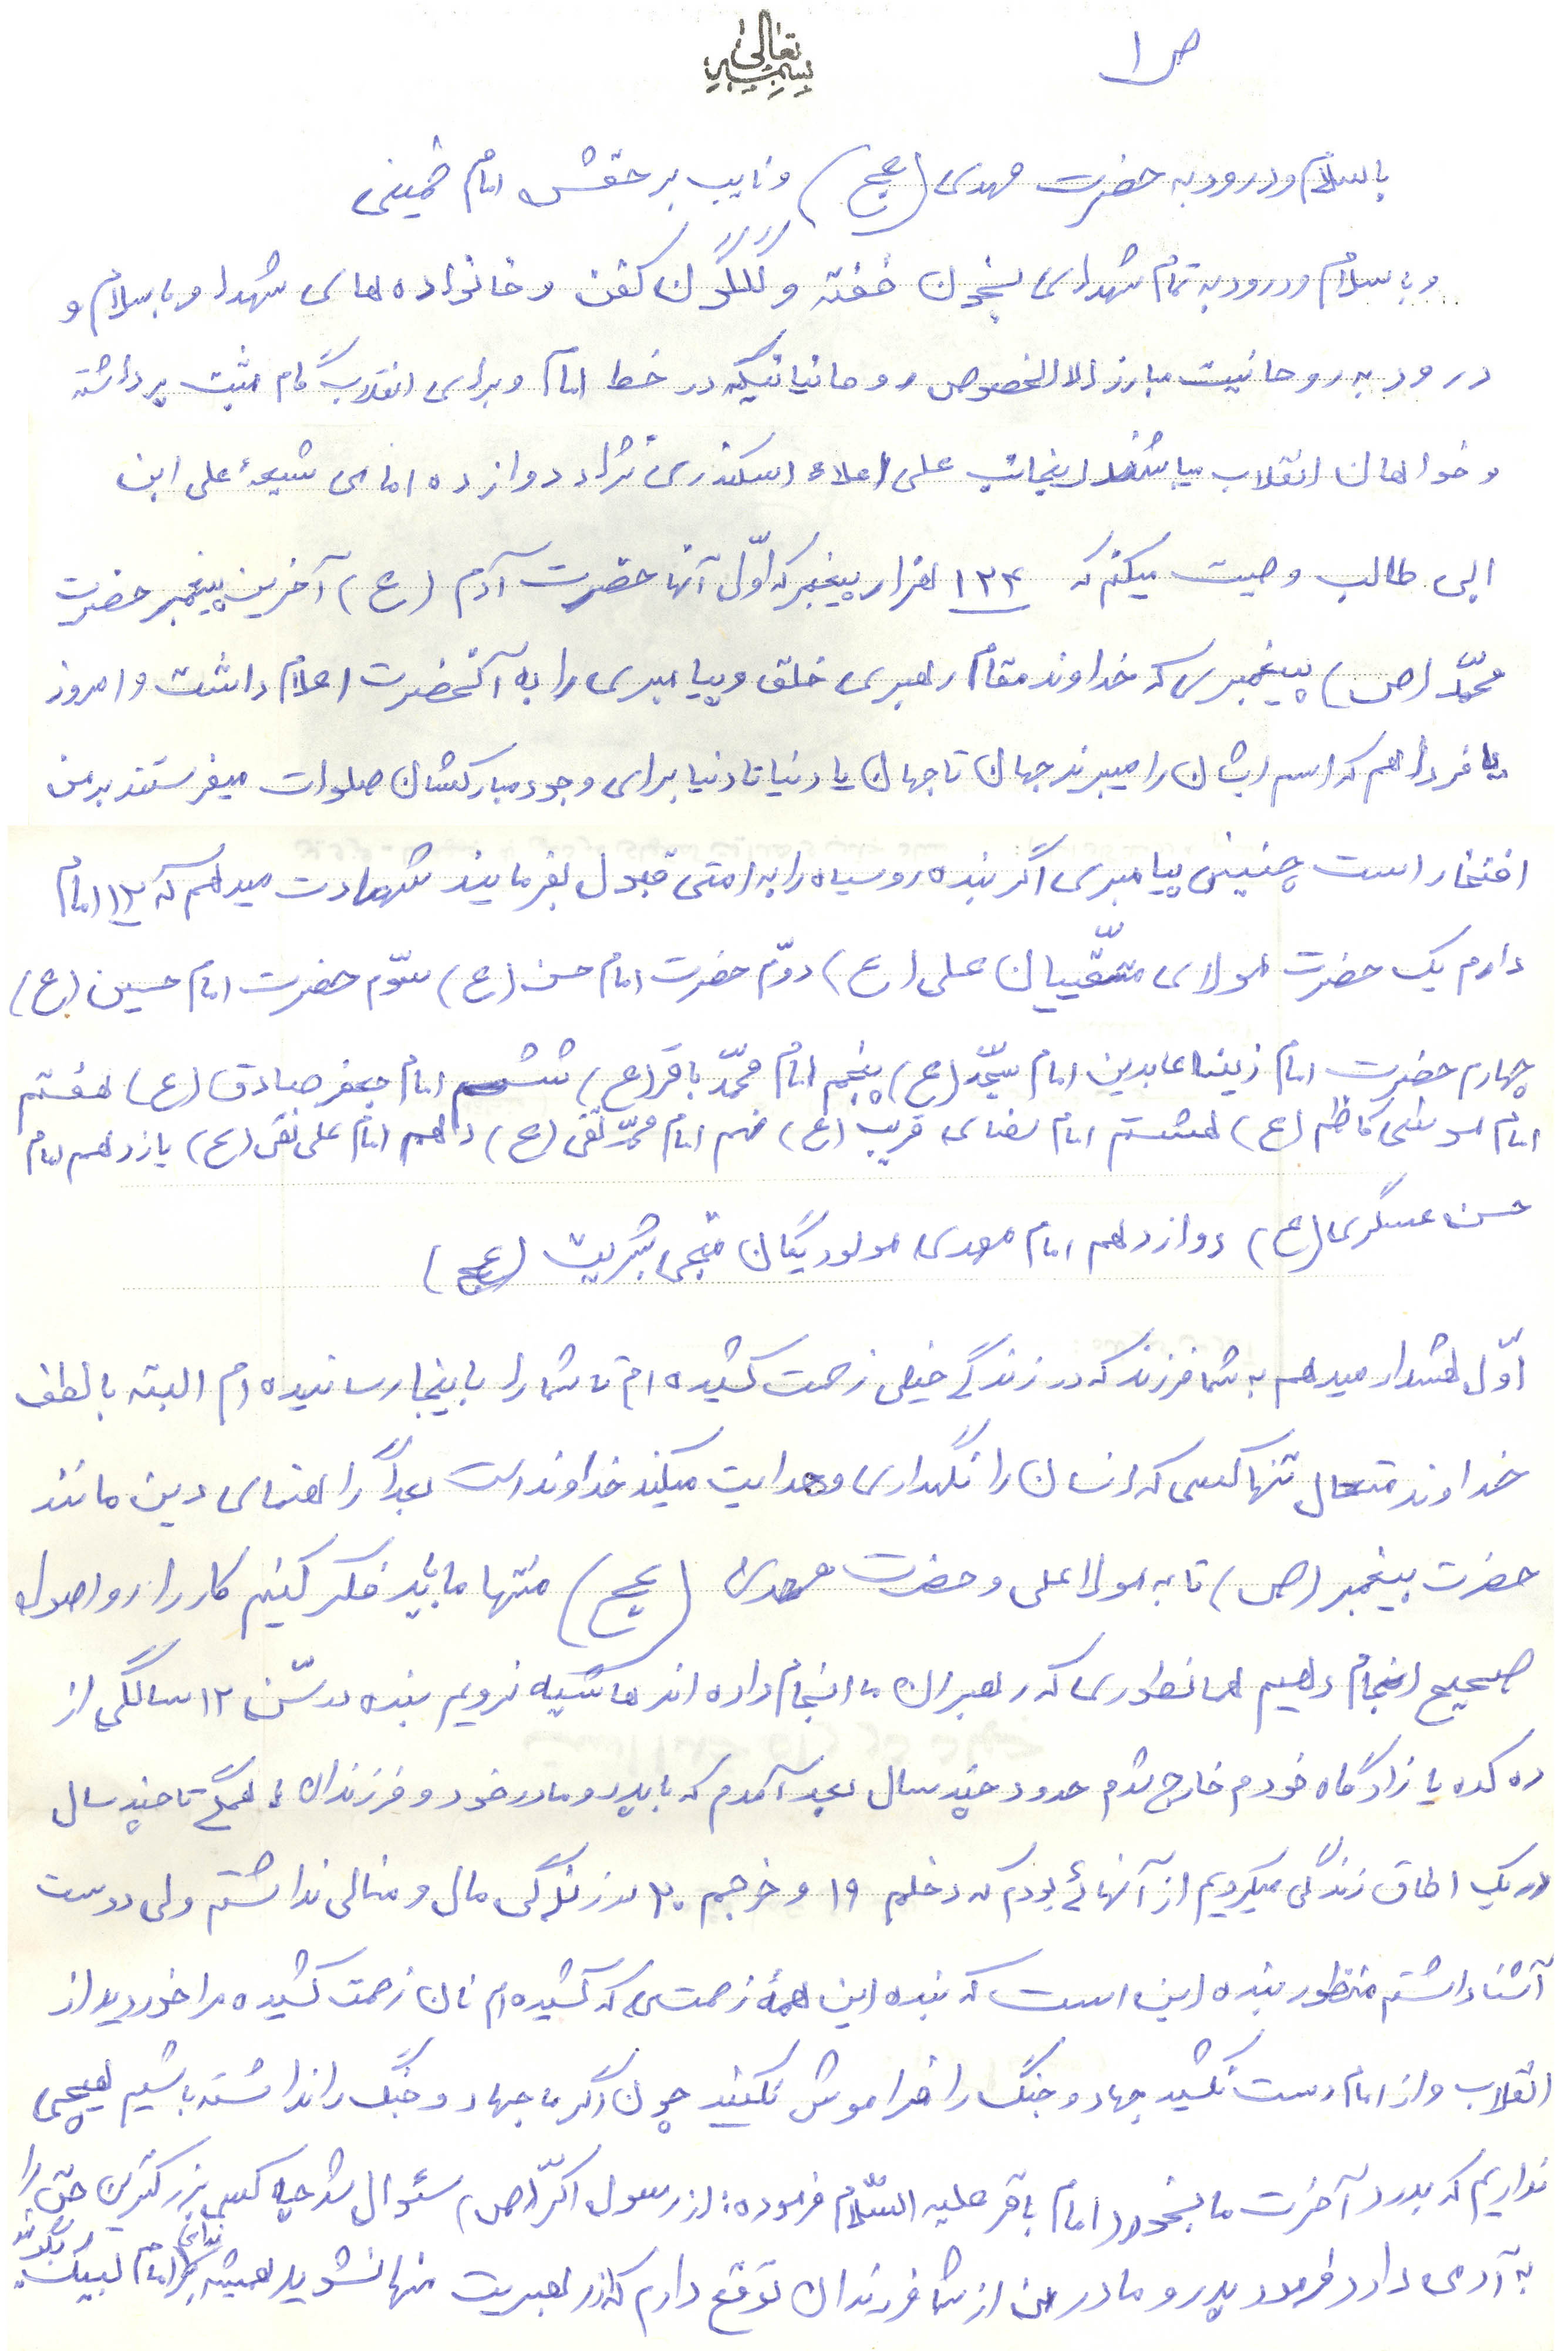 ص ۱
بسمه تعالی
با سلام و درود به حضرت مهدی (عج) و نایب بر حقش امام خمینی
و با سلام و درود به تمام شهدای بخون خفته و گلگون کفن و خانواده های شهدا و با سلام و
درود به روحانیت مبارز الا الخصوص روحانیانیکه در خط امام و برای انقلاب گام مثبت برداشته
و خواهان انقلاب میباشند اینجانب علی اعلاء اسکندری نژاد دوازده امامی شیعهٔ علی ابن
ابی طالب وصیت میکنم که ۱۲۴ هزار پیغمبر که اوّل آنها حضرت آدم (ع) آخرین پیغمبر حضرت
محمّد (ص) پیغمبری که خداوند مقام رهبری خلق و پیامبری را به آنحضرت اعلام داشت و امروز
یا فردا هم که اسم ایشان را میبرند جهان تا جهان یا دنیا تا دنیا برای وجود مبارکشان صلوات میفرستند بر من
افتخار است چنینی پیامبری اگر بنده روسیاه را به امتی قبول بفرمایند شهادت میدهم که ۱۲ امام
دارم یک حضرت مولای متّقییان علی (ع) دوّم حضرت امام حسن (ع) سوّم حضرت امام حسین (ع)
چهارم حضرت امام زینلعابدین امام سجّد (ع) پنجم امام محمّد باقر (ع) ششم امام جعفر صادق (ع) هفتم
امام موسی کاظم (ع) هشتم امام رضای قریب (ع) نهم امام محمّد تقی (ع) دهم امام علی نقی (ع) یازدهم امام
حسن عسگری (ع) دوازدهم امام مهدی مولود یگان منجی بشریت (عج)
اوّل هشدار میدهم به شما فرزند که در زندگی خیلی زحمت کشیده ام تا شما را باینجا رسانیده ام البته با لطف
خداوند متعال تنها کسی که انسان را نگهداری و هدایت میکند خداوند است بعداً راهنمای دین مانند
حضرت پیغمبر (ص) تا به مولا علی و حضرت مهدی (عج) منتها ما باید فکر کنیم کار را رو اصول
صحیح انجام دهیم همانطوری که رهبران ما انجام داده اند حاشیه نرویم بنده در سّن ۱۲ سالگی از
ده کده یا زادگاه خودم خارج شدم حدود چند سال بعد آمدم که با پدر و مادر خود و فرزندان همگی تا چند سال
در یک اطاق زندگی میکردیم از آنهائی بودم که دخلم ۱۹ و خرجم ۲۰ در زندگی مال و منالی نداشتم ولی دوست
آشنا داشتم منظور بنده این است که بنده این همهٔ زحمتی که کشیده ام نان زحمت کشیده مرا خوردید از
انقلاب و از امام دست نکشید جهاد و جنگ را فراموش نکنید چون اگر ما جهاد و جنگ را نداشته باشیم هیچی
نداریم که بدرد آخرت ما بخورد امام باقر علیه السّلام فرموده: از رسول اکرّم (ص) سئوال شد چه کسی بزرگترین حق را
به آدمی دارد فرمود پدر و مادر من از شما فرزندان توقع دارم که از رهبریت منها نشوید همیشه به ندای امام لبیک بگوئید